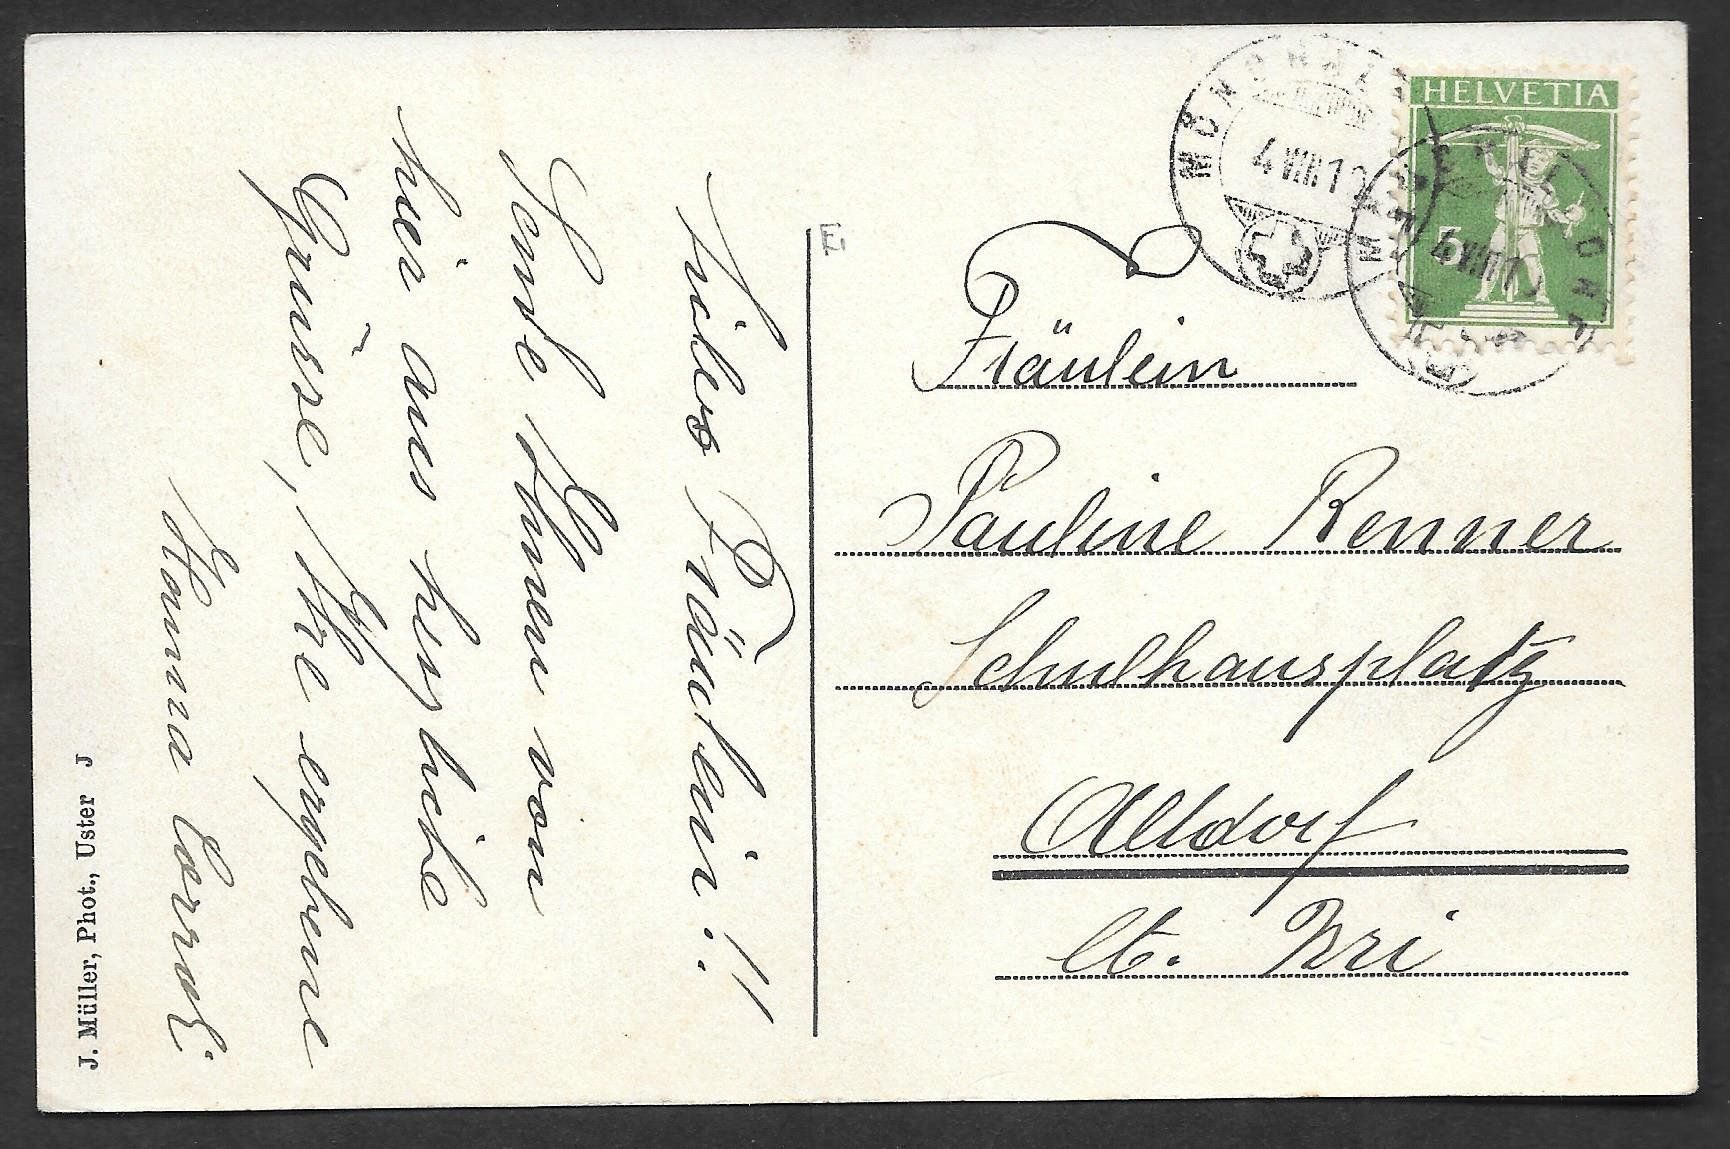 Liebes Fräulein!!
Sende Ihnen von
hier aus herzliche
Grüsse, Ihre ergebene
Hanna
J. Müller, Phot., Uster J
E
HELVETIA
5
4 VIII 1
4 VIII 1
Fräulein
Pauline Renner
Schulhausplatz
Altdorf
Ct. Uri